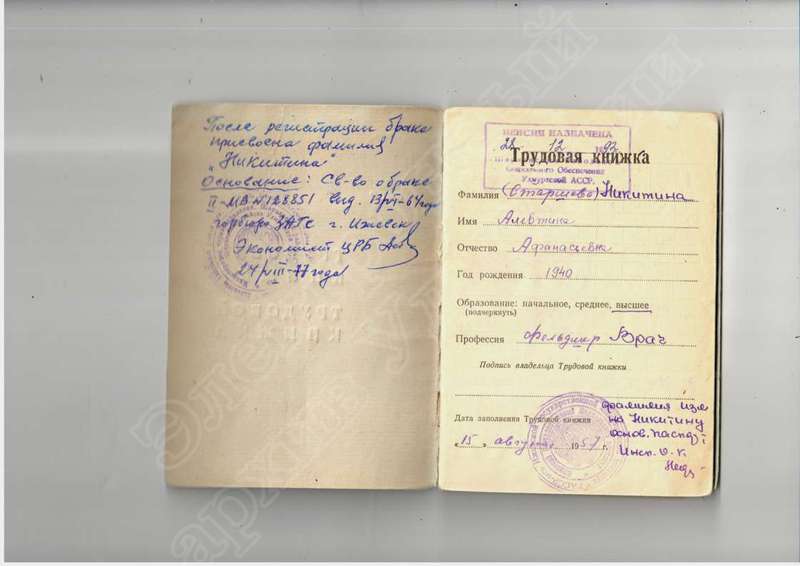 После регистрации брака
присвоена фамилия
"Никитина"
Основание: Св-во о браке
II-МВ №128851 выд. 13/VI-64года
горбюро ЗАГС г. Ижевск
Экономист ЦРБ
24/VIII-77 года
ПЕНСИЯ НАЗНАЧЕНА
28 12 1992
Трудовая книжка
Социального Обеспечения
Удмуртской АССР.
Фамилия (Старцева) Никитина
Имя Алевтина
Отчество Афанасьевна
Год рождения 1940
Образование: начальное, среднее, высшее
(подчеркнуть)
Профессия фельдшер Врач
Подпись владельца Трудовой книжки
Дата заполнения Трудовой книжки
"15" августа 1957 г.
фамилия изм
на Никитину
основ. паспорт
Инсп. о.к.